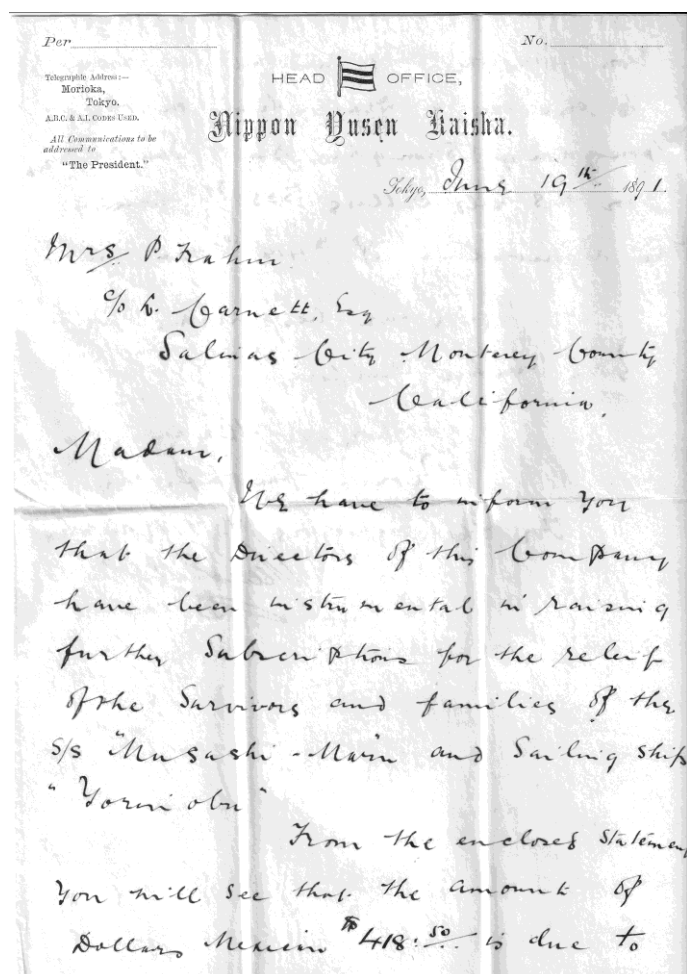 Per
No.
Telegraphic Address:—
Morioka,
Tokyo.
A.B.C. & A.I. CODES USED.
All Communications to be
addressed to
"The President."
HEAD OFFICE,
Nippon Yusen Kaisha.
Tokyo, June 19th 1891.
Mrs P Frahm
c/o L. Carnett, Esq
Salinas City Monterey County
California.
Madam,
We have to inform you
that the Directors of this Company
have been instrumental in raising
further Subscriptions for the releif
of the Survivors and families of the
s/s "Musashi-Maru" and Sailing ships
"Yorinobu"
From the enclosed statement
You will see that the amount of
Dollars Mexican $418.50 is due to